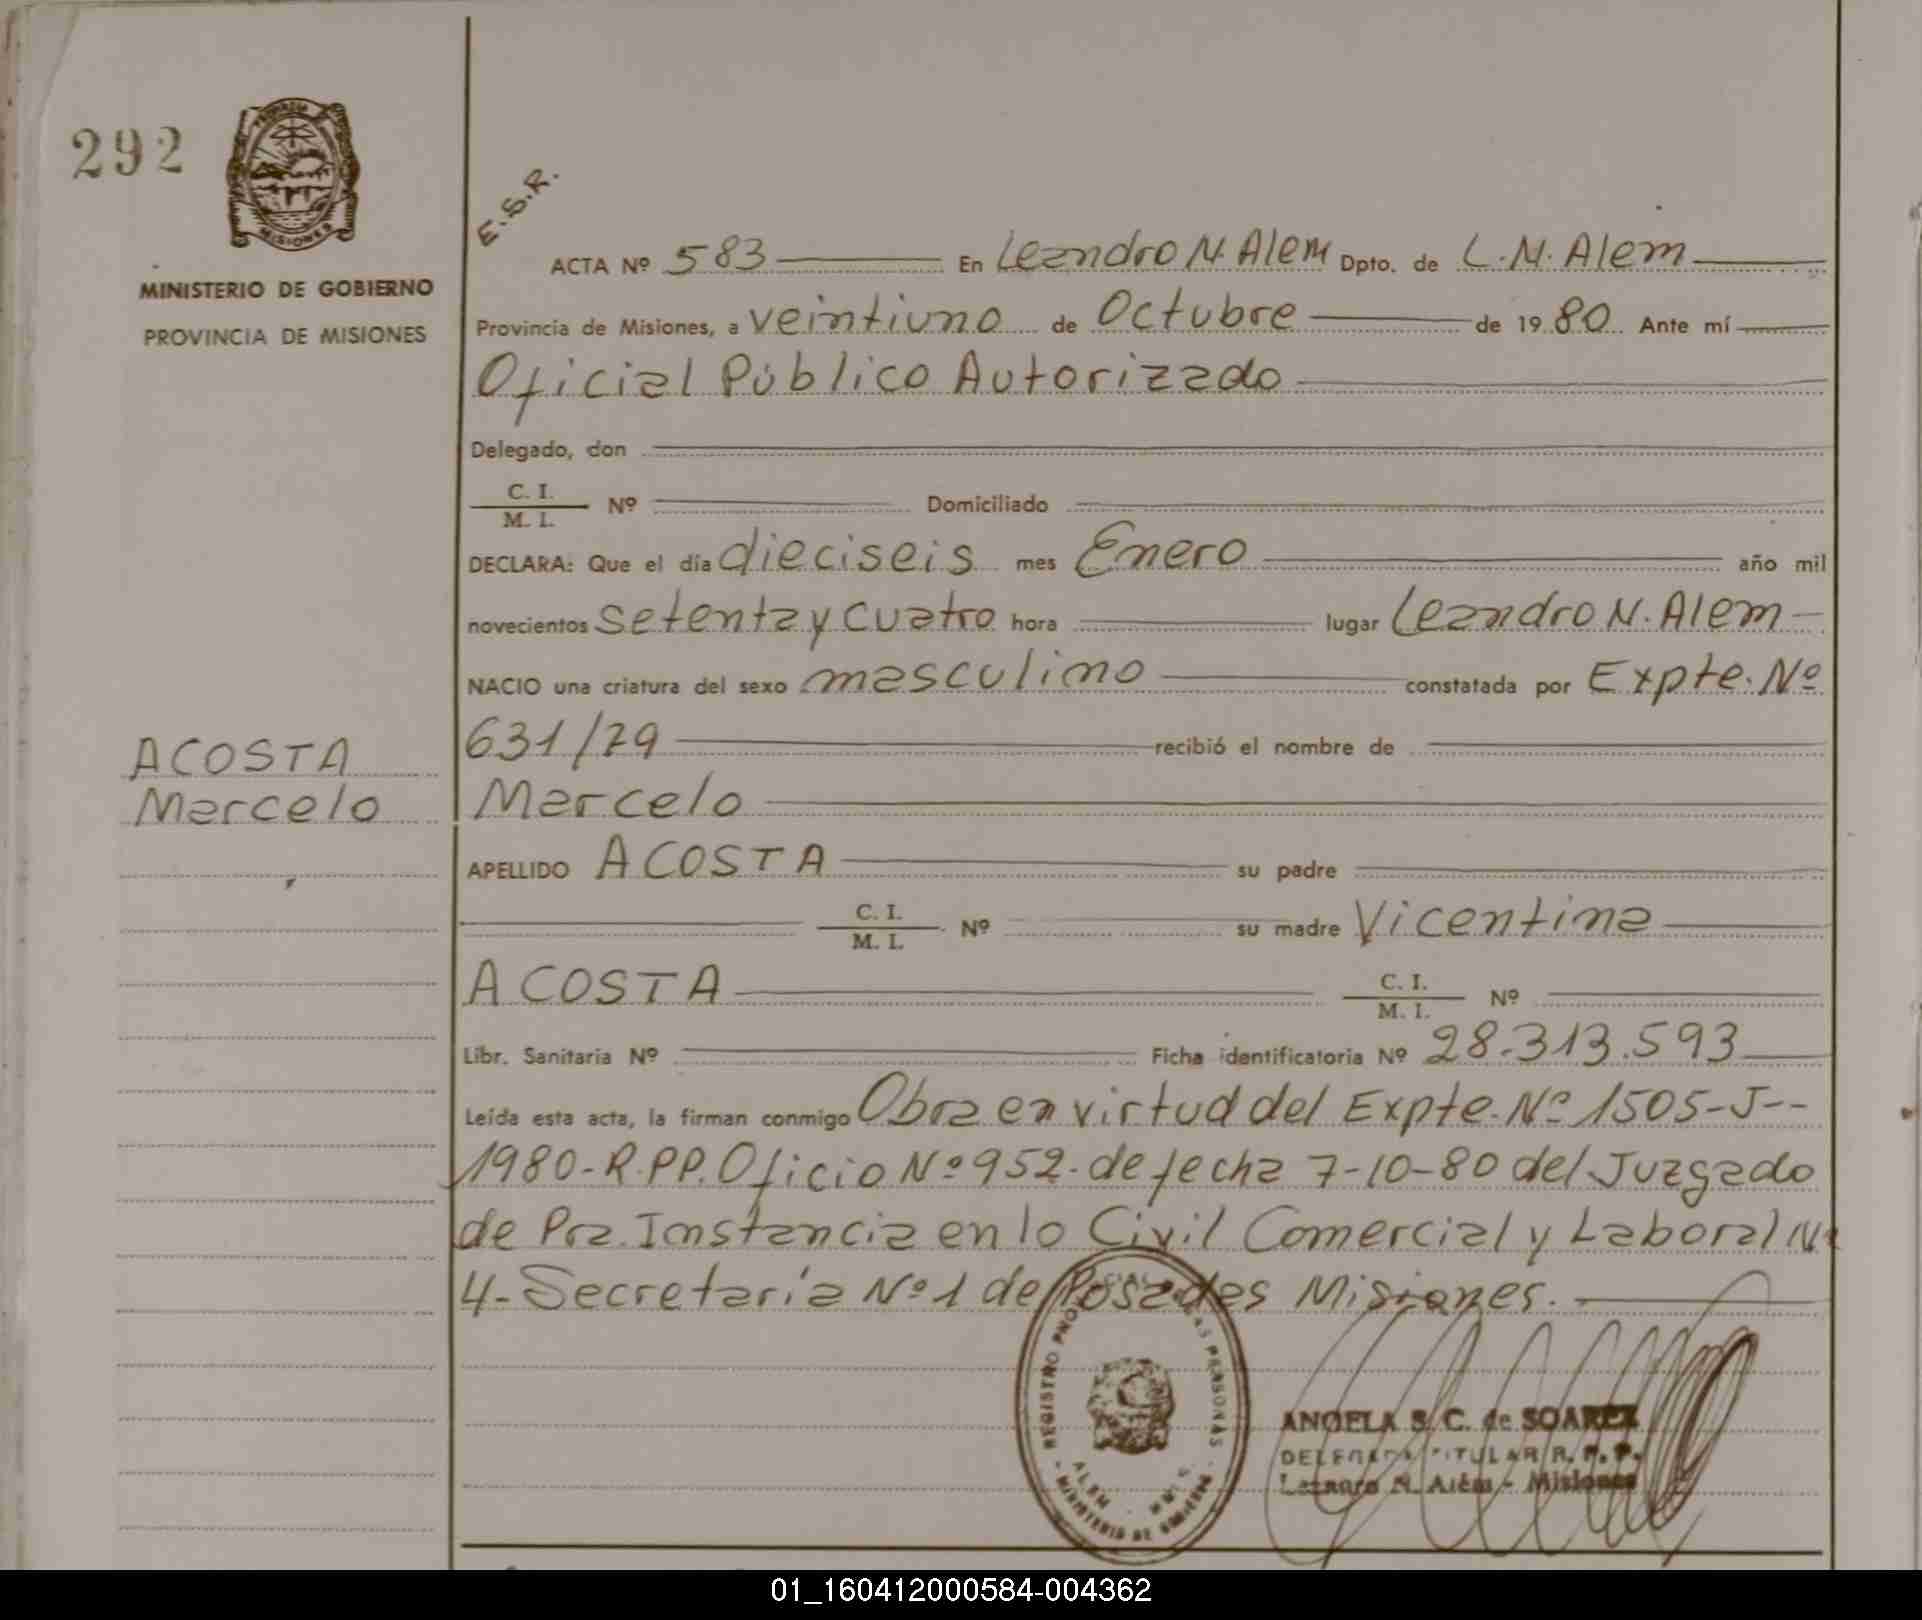 292
PROVINCIA
MISIONES
MINISTERIO DE GOBIERNO
PROVINCIA DE MISIONES
E.S.R.
ACTA Nº 583 En Leandro N. Alem Dpto. de L.N. Alem
Provincia de Misiones, a veintiuno de Octubre de 1980 Ante mí
Oficial Público Autorizado
Delegado, don
C. I.
M. I. Nº Domiciliado
DECLARA: Que el día dieciseis mes Enero año mil
novecientos setenta y cuatro hora lugar Leandro N. Alem
NACIO una criatura del sexo masculino constatada por Expte. Nº
631/79 recibió el nombre de
ACOSTA
Marcelo
Marcelo
APELLIDO ACOSTA su padre
C. I.
M. I. Nº su madre Vicentina
ACOSTA C. I.
M. I. Nº
Libr. Sanitaria Nº Ficha identificatoria Nº 28.313.593
Leída esta acta, la firman conmigo Obra en virtud del Expte. Nº 1505-J--
1980-R.PP. Oficio Nº 952- de fecha 7-10-80 del Juzgado
de Pra. Instancia en lo Civil Comercial y Laboral Nº
4- Secretaría Nº 1 de Posadas Misiones.
REGISTRO PROVINCIAL DE LAS PERSONAS
ALEM - MNES
MINISTERIO DE GOBIERNO
ANGELA S. C. de SOAREZ
DELEGADA TITULAR R. P. P.
Leandro N. Além - Misiones
01_160412000584-004362